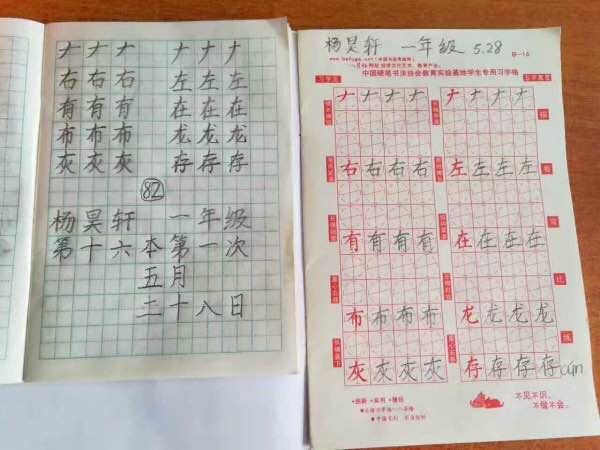 ナナナ ナナナ
右右右 左左左
有有有 在在在
布布布 龙龙龙
灰灰灰 存存存
82
杨昊轩 一年级
第十六本第一次
五月
二十八日
杨昊轩 一年级 5.28
B-16
中国硬笔书法协会教育实验基地学生专用习字格
ナナナナ ナナナナ
右右右右 左左左左
有有有有 在在在在
布布布布 龙龙龙龙
灰灰灰灰 存存存存 cún
不见不识,
不做不会。